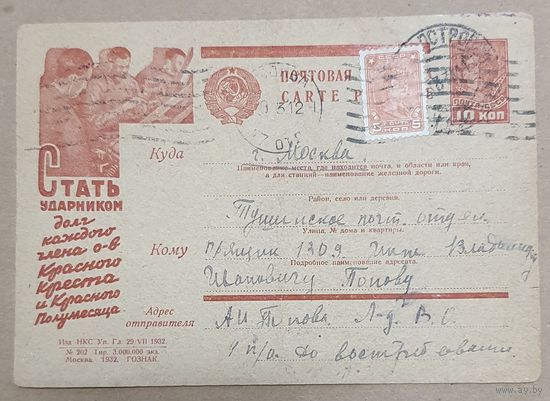 ПОЧТОВАЯ
CARTE P
5
КОП
ПОЧТА СССР
10 КОП
Куда
г. Москва.
Наименование места, где находится почта, и области или края,
а для станций—наименование железной дороги.
Район, село или деревня.
Тушинское почт. отдел.
Улица, № дома и квартиры.
Кому
ящик 1309 Инж. Владимир
Подробное наименование адресата.
Ивановичу Попову
Адрес
отправителя
А И Попова Л-д В. О.
4 п/о до востребования
СТАТЬ
УДАРНИКОМ
долг
каждого
члена о-в
Красного
Креста
и Красного
Полумесяца
Изд НКС Уп. Гл. 29/VII 1932.
№ 202 Тир. 3.000.000 экз.
Москва. 1932. ГОЗНАК.
www.ay.by